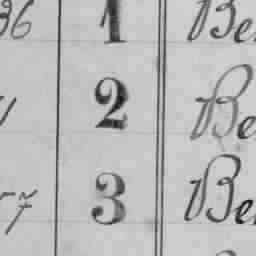 36 1 Be
2 Be
57 3 Be